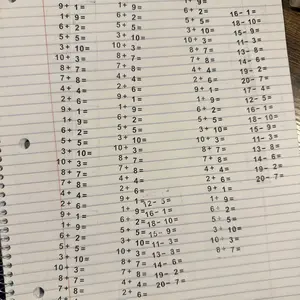 9+ 1=
1+ 9=
6+ 2=
5+ 5=
3+ 10=
10+ 3=
8+ 7=
7+ 8=
4+ 4=
2+ 6=
9+ 1=
1+ 9=
6+ 2=
5+ 5=
3+ 10=
10+ 3=
8+ 7=
7+ 8=
4+ 4=
2+ 6=
9+ 1=
1+ 9=
6+ 2=
5+ 5=
3+ 10=
10+ 3=
8+ 7=
7+ 8=
1+ 9=
6+ 2=
5+ 5=
3+ 10=
10+ 3=
8+ 7=
7+ 8=
4+ 4=
2+ 6=
9+ 1=
1+ 9=
6+ 2=
5+ 5=
3+ 10=
10+ 3=
8+ 7=
7+ 8=
4+ 4=
2+ 6=
9+ 1=
1+ 9=
6+ 2=
5+ 5=
3+ 10=
10+ 3=
8+ 7=
7+ 8=
4+ 4=
2+ 6=
12- 5=
16- 1=
18- 10=
15- 9=
11- 3=
13- 8=
14- 6=
19- 2=
20- 7=
1+ 9=
6+ 2=
5+ 5=
3+ 10=
10+ 3=
8+ 7=
7+ 8=
4+ 4=
2+ 6=
9+ 1=
1+ 9=
6+ 2=
5+ 5=
3+ 10=
10+ 3=
8+ 7=
7+ 8=
4+ 4=
2+ 6=
9+ 1=
1+ 9=
6+ 2=
5+ 5=
3+ 10=
10+ 3=
8+ 7=
16- 1=
18- 10=
15- 9=
11- 3=
13- 8=
14- 6=
19- 2=
20- 7=
17- 4=
12- 5=
16- 1=
18- 10=
15- 9=
11- 3=
13- 8=
14- 6=
19- 2=
20- 7=